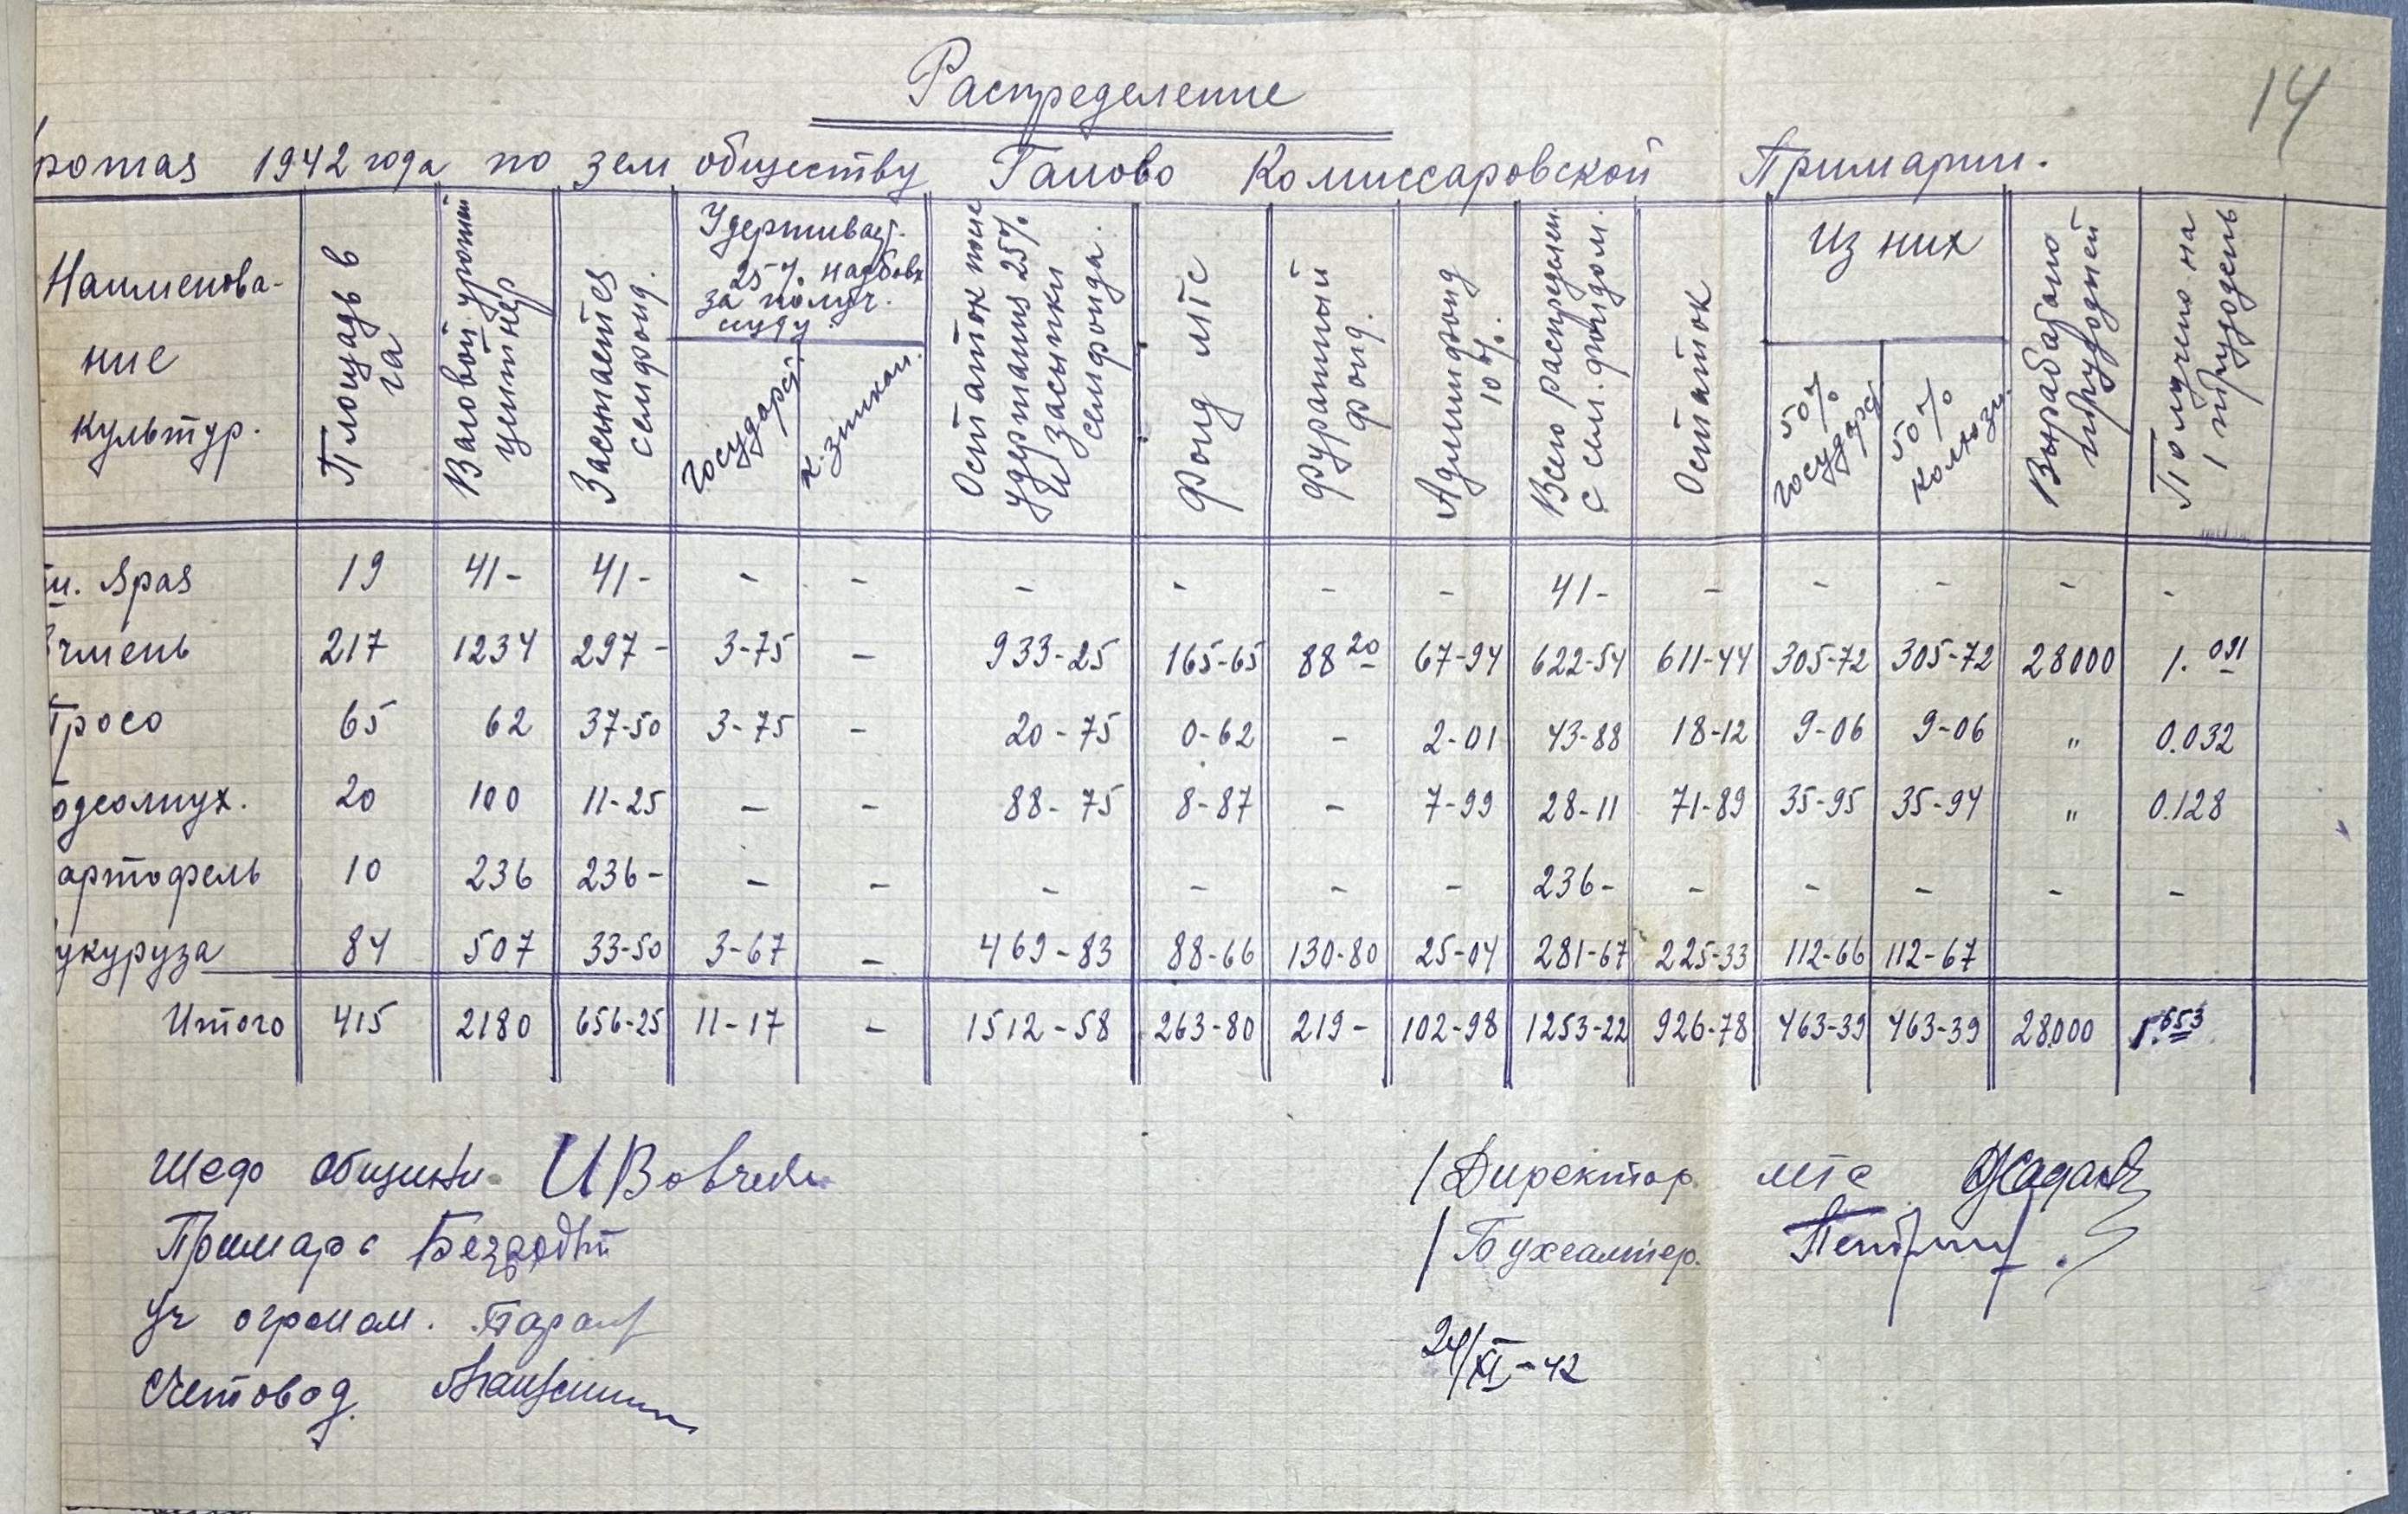 14
Распределение
рожая 1942 года по зем обществу Ганово Комиссаровской Примарии.
Наименова-
ние
культур.
Площадь в
га
Валовой урожай
центнер
Засыпается
семфонд.
Удерживает.
25% надбовк
за получ.
ссуду.
государст.
к. зликом.
Остаток после
удержания 25%
и засыпки
семфонда.
Фонд мтс
Фуражный
фонд.
Админфонд
10%.
Всего распределен.
с сем. фондом.
Остаток
из них
50%
государс
50%
колхозу.
Выработано
трудодней
Получено на
1 трудодень
ш. Яраs 19 41- 41- - - - - - - 41- - - - - -
чмень 217 1234 297- 3-75 - 933-25 165-65 88 20 67-94 622-54 611-44 305-72 305-72 28000 1. 091
Просо 65 62 37-50 3-75 - 20-75 0-62 - 2-01 43-88 18-12 9-06 9-06 " 0.032
одсолнух. 20 100 11-25 - - 88-75 8-87 - 7-99 28-11 71-89 35-95 35-94 " 0.128
артофель 10 236 236- - - - - - - 236- - - - - -
укуруза 84 507 33-50 3-67 - 469-83 88-66 130-80 25-04 281-67 225-33 112-66 112-67
Итого 415 2180 656-25 11-17 - 1512-58 263-80 219- 102-98 1253-22 926-78 463-39 463-39 28000 1.653
Шеф общины И Вовчен
Примарь Безродний
Уч огроном.
Счетовод.
/Директор мтс
/Бухгалтер.
24/XI-42